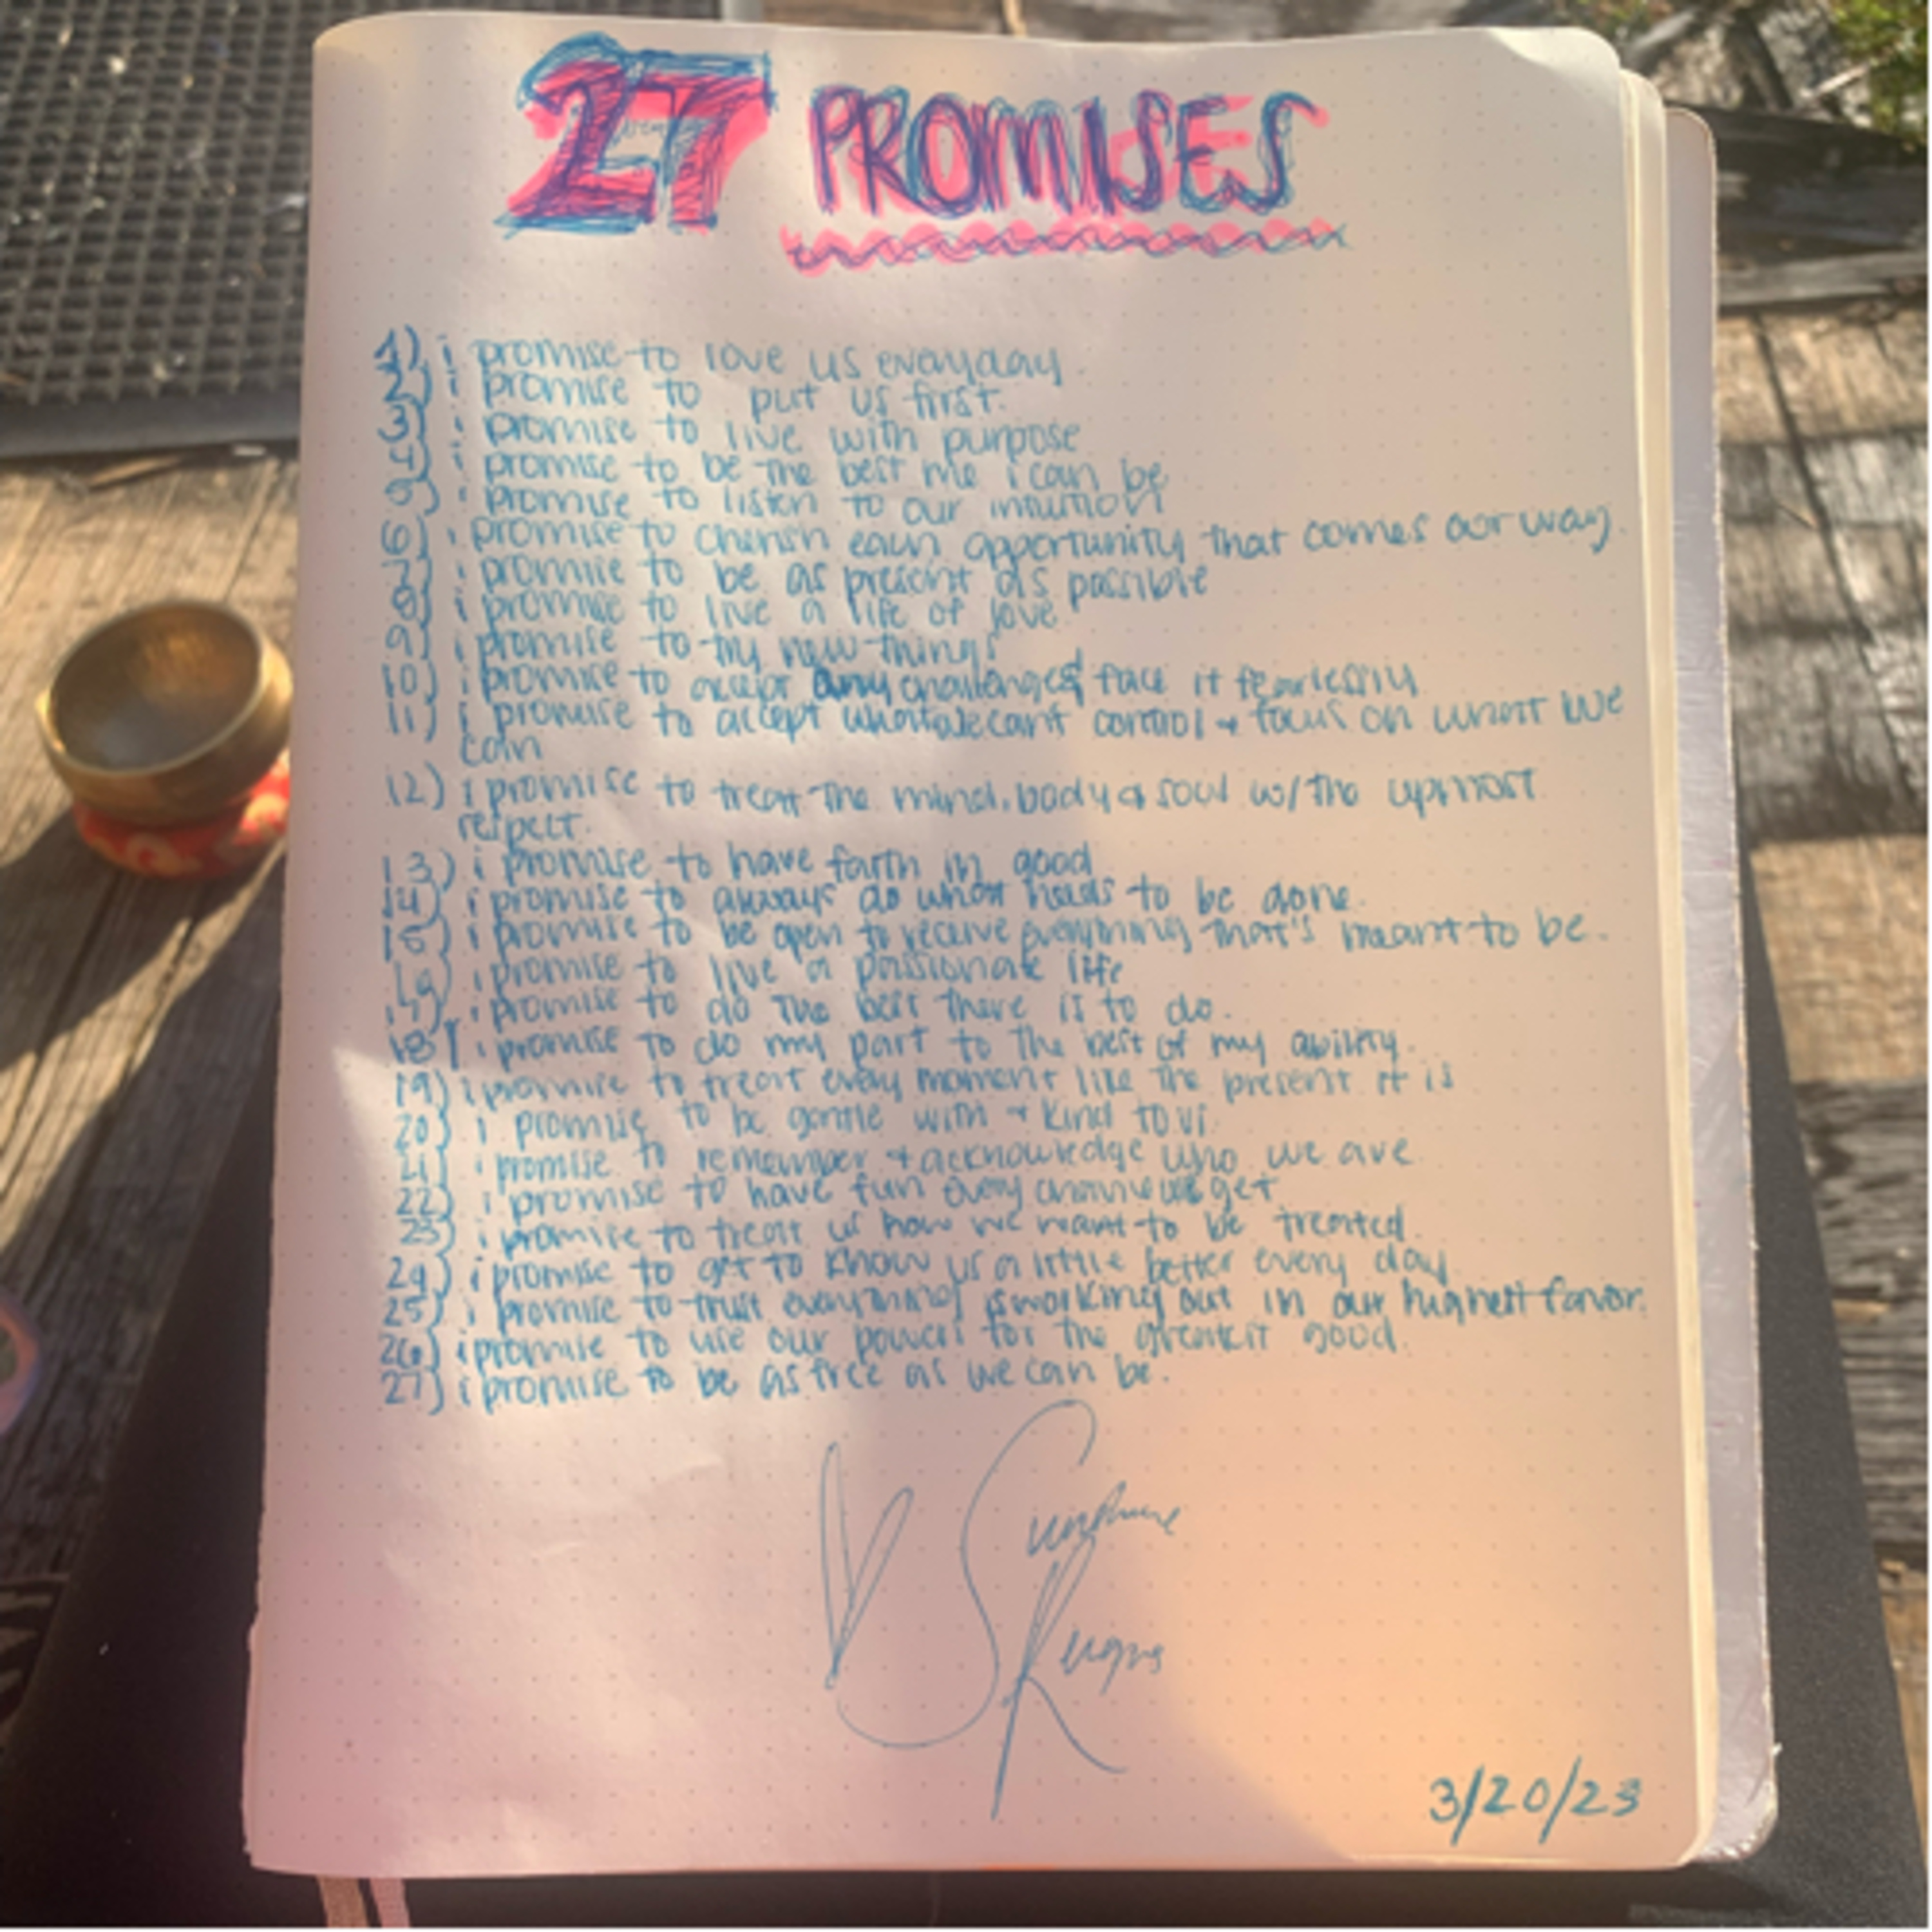 27 PROMISES
1) i promise to love us everyday.
2) i promise to put us first.
3) i promise to live with purpose
4) i promise to be the best me i can be
5) i promise to listen to our intuition
6) i promise to cherish each opportunity that comes our way.
7) i promise to be as present as possible
8) i promise to live a life of love
9) i promise to try new things
10) i promise to accept any challenge & face it fearlessly
11) i promise to accept what we can't control + focus on what we
can
12) i promise to treat the mind, body & soul w/ the upmost
respect.
13) i promise to have faith in good
14) i promise to always do what needs to be done.
15) i promise to be open to receive everything that's meant to be.
16) i promise to live a passionate life
17) i promise to do the best there is to do.
18) i promise to do my part to the best of my ability.
19) i promise to treat every moment like the present it is
20) i promise to be gentle with + kind to us.
21) i promise to remember + acknowledge who we are
22) i promise to have fun every chance we get
23) i promise to treat us how we want to be treated.
24) i promise to get to know us a little better every day
25) i promise to trust everything is working out in our highest favor.
26) i promise to use our powers for the greatest good.
27) i promise to be as free as we can be.
Sunshine
3/20/23